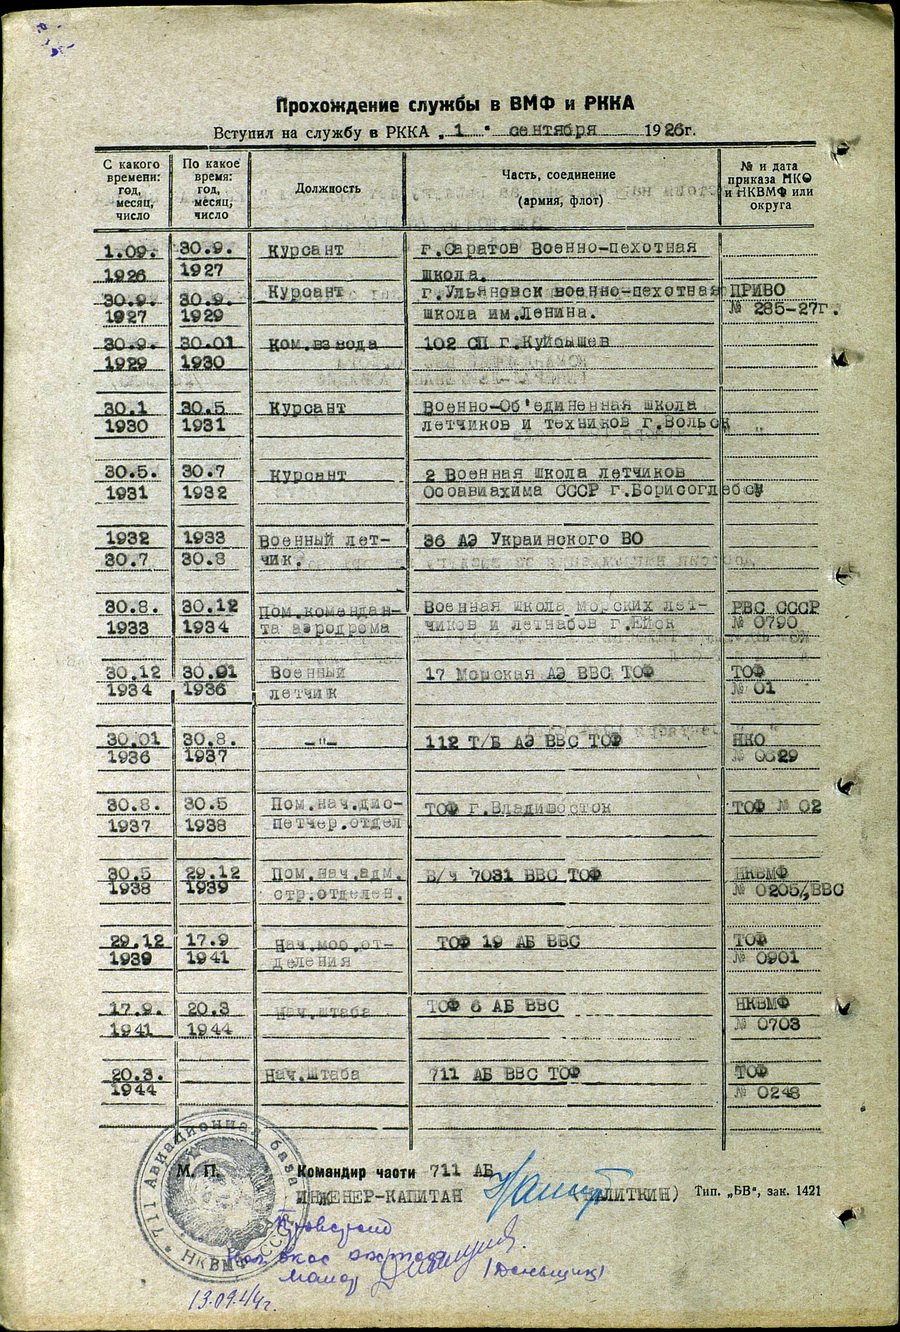 Прохождение службы в ВМФ и РККА
Вступил на службу в РККА „1" сентября 1926г.
С какого времени: год, месяц, число
По какое время: год, месяц, число
Должность
Часть, соединение (армия, флот)
№ и дата приказа МКФ и НКВМФ или округа
1.09. 30.9. Курсант г.Саратов Военно-пехотная
1926 1927 школа.
30.9. 30.9. Курсант г.Ульяновск военно-пехотная ПРИВО
1927 1929 школа им.Ленина. № 285-27г.
30.9. 30.01 Ком.взвода 102 СП г.Куйбышев
1929 1930
30.1 30.5 Курсант Военно-Об'единенная школа
1930 1931 летчиков и техников г.Вольск "
30.5. 30.7 Курсант 2 Военная школа летчиков
1931 1932 Осоавиахима СССР г.Борисоглебск
1932 1933 Военный лет- 36 АЭ Украинского ВО
30.7 30.8 чик.
30.8. 30.12 Пом.комендан- Военная школа морских лет- РВС СССР
1933 1934 та аэродрома чиков и летнабов г.Ейск № 0790
30.12 30.01 Военный 17 Морская АЭ ВВС ТОФ ТОФ
1934 1936 летчик № 01
30.01 30.8. -"- 112 Т/Б АЭ ВВС ТОФ НКО
1936 1937 № 0629
30.8. 30.5 Пом.нач.дис- ТОФ г.Владивосток ТОФ № 02
1937 1938 петчер.отдел
30.5 29.12 Пом.нач.адм. В/ч 7031 ВВС ТОФ НКВМФ
1938 1939 стр.отделен. № 0205/ВВС
29.12 17.9 Нач.моб.от- ТОФ 19 АБ ВВС ТОФ
1939 1941 деления № 0901
17.9. 20.3 Нач.штаба ТОФ 6 АБ ВВС НКВМФ
1941 1944 № 0703
20.3. Нач.штаба 711 АБ ВВС ТОФ ТОФ
1944 № 0248
М. П. Командир части 711 АБ
ИНЖЕНЕР-КАПИТАН (ПАЛИТКИН) Тип. „БВ", зак. 1421
711 Авиационная база
НКВМФ СССР
(Деньщик)
13.09.44г.